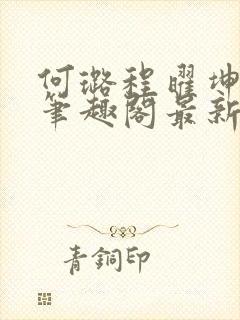 何璐程曜坤
笔趣阁最新
青銅印